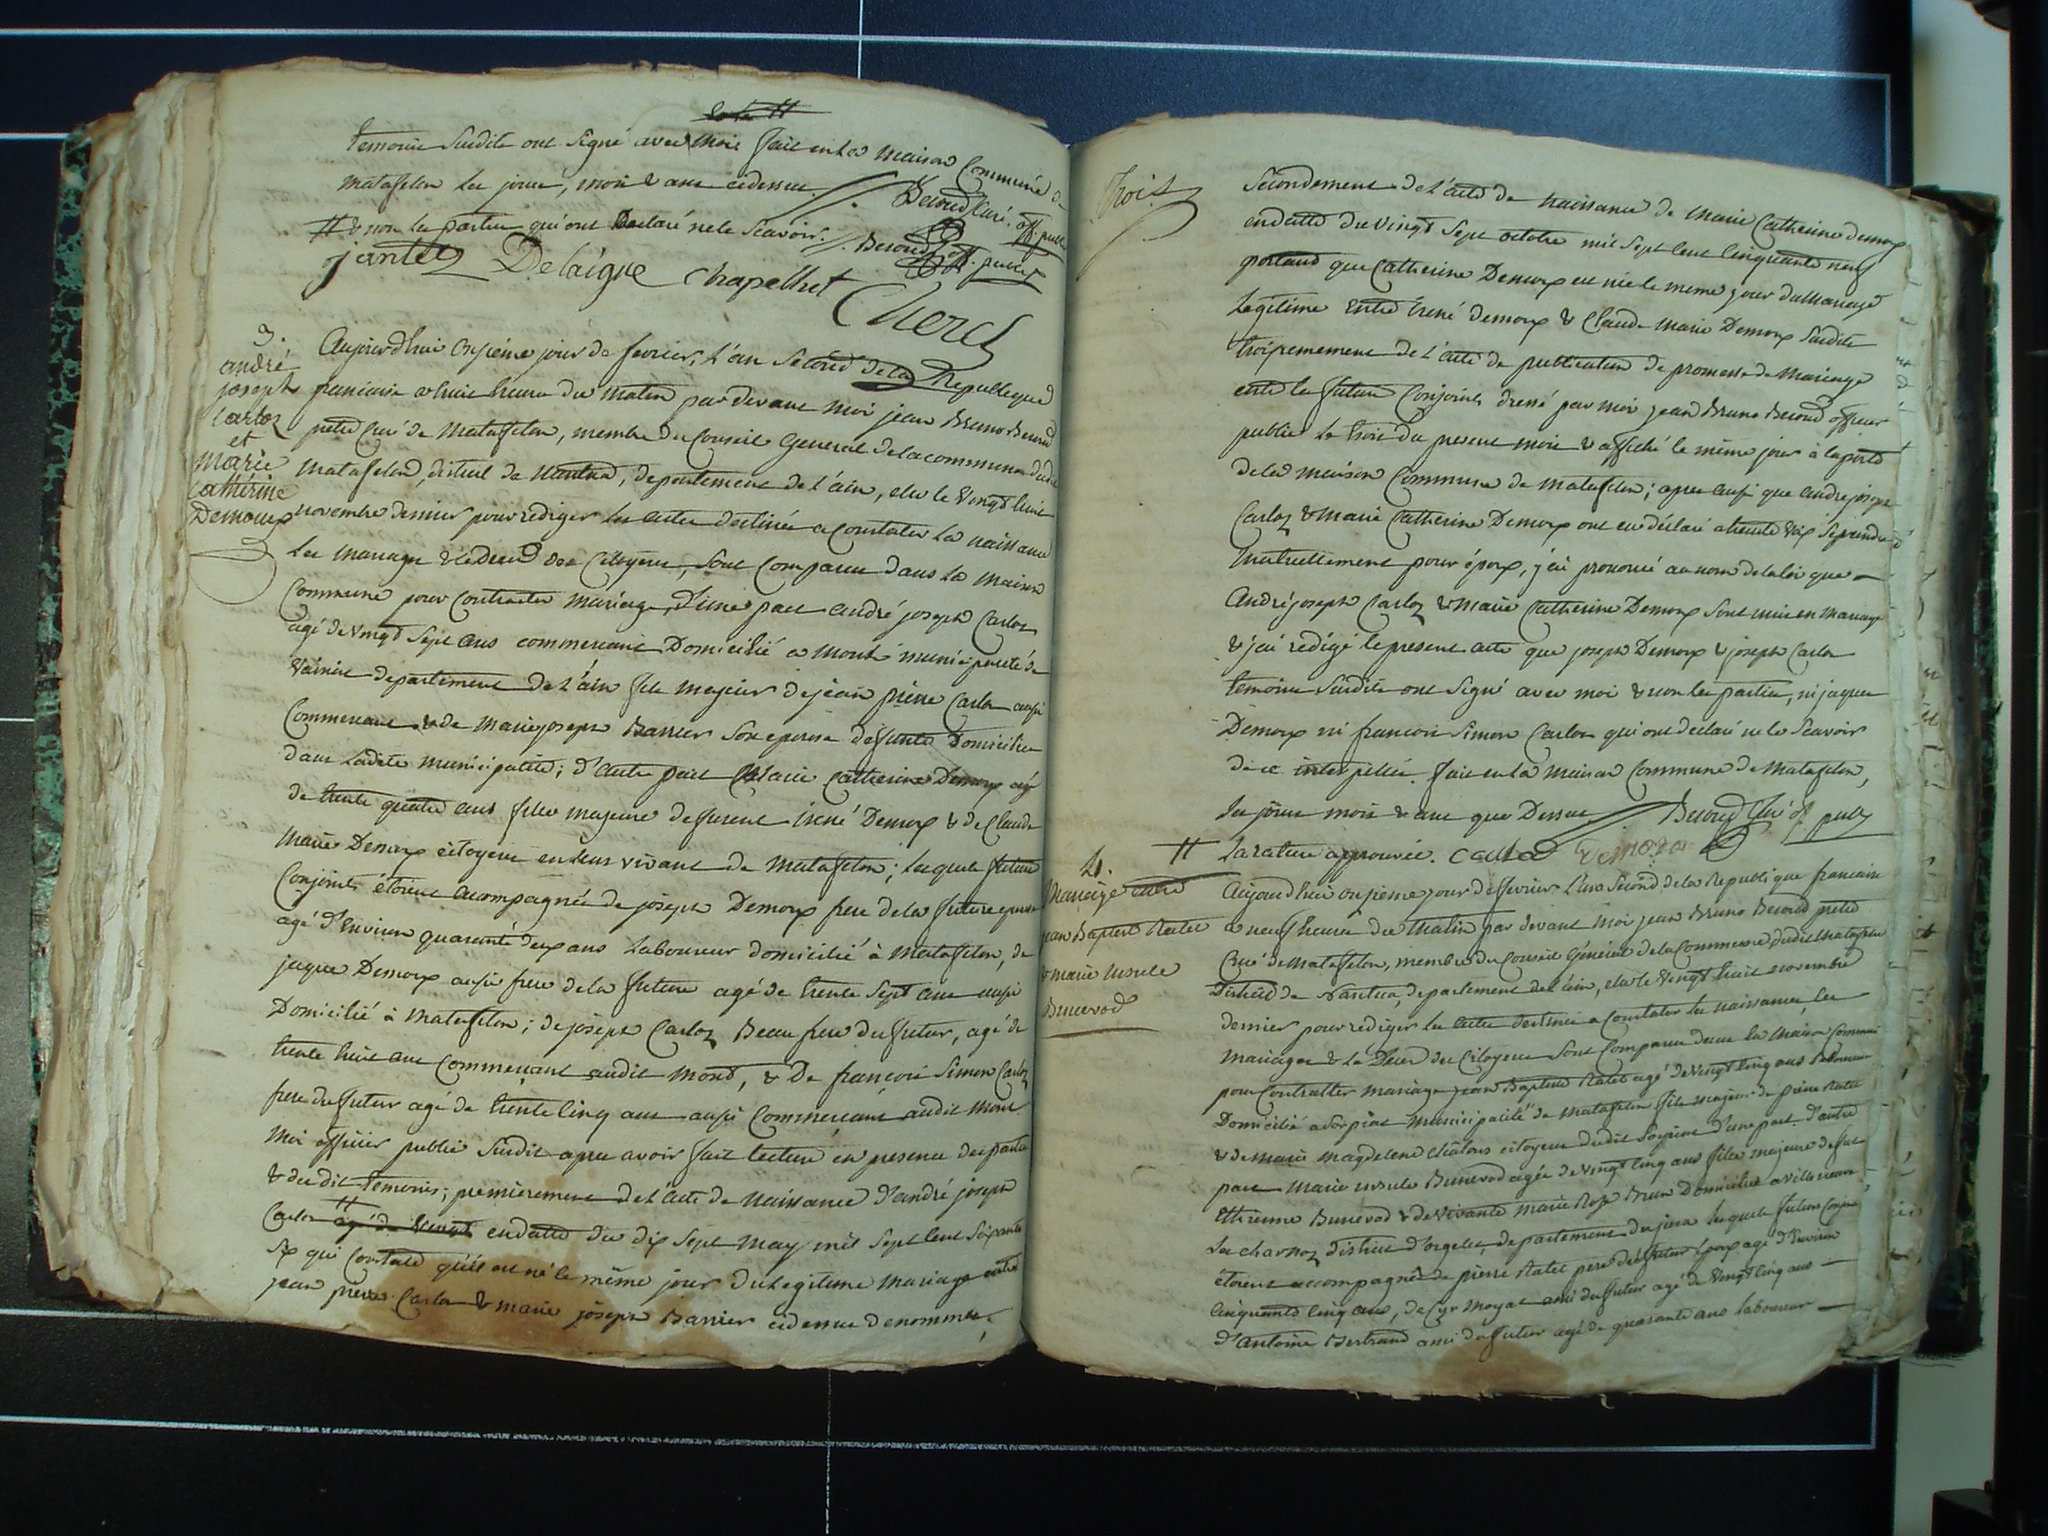 temoins susdits ont signé avec moi fait en la maison Commune de
Matafelon les jour, mois & ans cidessus
Beroud Curé. off. public
# & non les parties qui ont declaré ne le scavoir.
Beroud off. public
jantet Delaigue Chapellut
Cherel
3.
andré
joseph
Carloz
et
marie
Catherine
Demoux
Aujourd'huis onzième jour de fevrier, l'an second de la Republique
francaise a huit heure du matin par devant moi jean Bruno Beroud
prêtre Curé de Matafelon, membre du Conseil General de la commune dudit
Matafelon, district de Nantua, departement de l'ain, elu le vingt huit
novembre dernier pour rediger les actes destinés a constater la naissance
les mariages & le deces des Citoyens, sont comparus dans la maison
Commune pour contracter mariage, d'une part andré joseph Carloz
agé de vingt sept ans commercant Domicilié a Mont municipalité de
departement de l'ain fils majeur de jean pierre Carloz aussi
Commercant & de Marie joseph Barrier son epouse defunte Domiciliés
dans ladite municipalité; d'autre part Marie Catherine Demoux agé
de trente quatre ans fille majeure deffunt irené Demoux & de Claude
Marie Demoux citoyens en leurs vivant de Matafelon; lesquels futurs
Conjoints étoient acompagnés de joseph Demoux frere de la future epouse
agé d'environ quarante deux ans Laboureur domicilié à Matafelon, de
jaques Demoux aussi frere de la future agé de trente sept ans aussi
Domicilié à Matafelon; de joseph Carloz Beau frere du futur, agé de
trente huit ans commerçant audit Mont, & De francois Simon Carloz
frere du futur agé de trente cinq ans aussi Commercant audit Mont
Moi officier public susdit apres avoir fait lecture en presence des parties
& desdits temoins; premierement de l'acte de naissance d'andré joseph
Carloz # agé de vingt endatte du dix sept may mil sept cent soixante
six qui constate qu'il est né le même jour du Legitime mariage entre
jean pierre Carloz & marie joseph Barrier cidessus denommés,
trois
secondement de l'acte de naissance de Marie Catherine demoux
endatte du vingt sept octobre mil sept cent cinquante neuf
portant que Catherine Demoux est née le meme jour du Mariage
Legitime entre irené demoux & Claude Marie Demoux susdits
troisiemement de l'acte de publication de promesse de Mariage
entre les futurs Conjoints dressé par moi jean Bruno Beroud officier
public le trois du present mois & affiché le même jour à la porte
de la maison Commune de Matafelon; apres aussi que andré joseph
Carloz & Marie Catherine Demoux ont eu déclaré a haute voix se prendre
Mutuellement pour époux, j'ai prononcé au nom de la loi que
André joseph Carloz & Marie Catherine Demoux sont unis en mariage
& j'ai rédigé le present acte que joseph Demoux & joseph Carloz
temoins susdits ont signé avec moi & non les parties, ni jaques
Demoux ni francois Simon Carloz qui ont declaré ne le scavoir
de ce interpellés. fait en la maison Commune de Matafelon,
les jour mois & ans que Dessus Beroud Curé off public
# la rature approuvée. Carloz Demoux
4.
Mariage entre
jean Baptiste Ratet
& marie ursule
Bunevod
Aujourd'huis onzieme jour de fevrier l'an second de la Republique francaise
a neuf heure du Matin par devant moi jean Bruno Beroud pretre
Curé de Matafelon, membre du Conseil Général de la Commune dudit Matafelon
District de Nantua departement de l'ain, elu le vingt huit novembre
dernier pour rediger les actes destinés a constater les naissances, les
mariages & les Deces des Citoyens sont Comparus dans la maison Commune
pour Contracter mariage jean Baptiste Ratet agé de vingt cinq ans Laboureur
Domicilié a Sorpiat Municipalité de Matafelon fils majeur de pierre Ratet
& de marie magdelene Chatons citoyens dudit Sorpiat d'une part. d'autre
part Marie ursule Bunevod agée de vingt cinq ans fille majeure de feu
Ethienne Bunevod & de vivante Marie Roze Brun Domiciliée a villeneuve
les charnoz district d'orgelet, departement du jura lesquels futurs Conjoints
étoient accompagnés de pierre Ratet pere du futur epoux agé d'environ
cinquante cinq ans, de Cyr Moyat ami du futur agé de vingt cinq ans
d'antoine Bertrand ami du futur agé de quarante ans laboureur